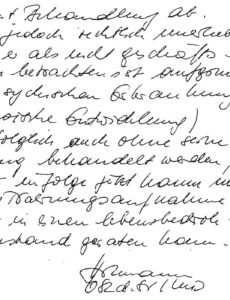 t Behandlung ab.
jedoch rechtlich unerheb
er als nicht geschäfts-
betrachten ist aufgrun
sychischen Erkrankung
Entwicklung)
folglich auch ohne seine
ng behandelt werden,
infolge jetzt kann
Nahrungsaufnahme
in einen lebensbedroh-
ustand geraten kann.